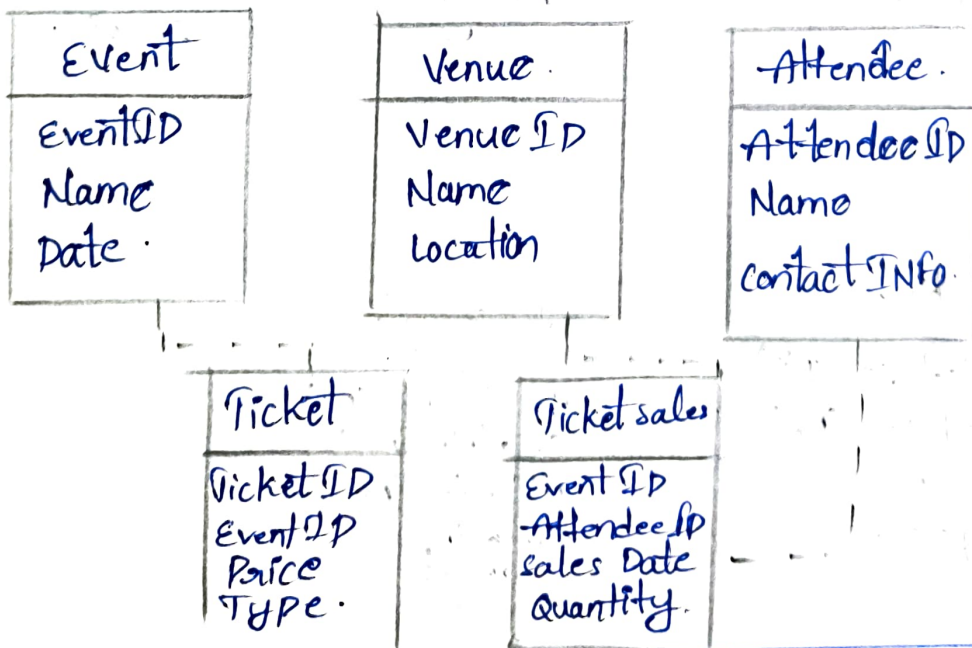 Event
EventID
Name
Date.
Venue.
Venue ID
Name
Location
Attendee.
Attendee ID
Name
Contact INfo.
Ticket
Ticket ID
Event ID
Price
Type.
Ticket sales
Event ID
Attendee ID
Sales Date
Quantity.